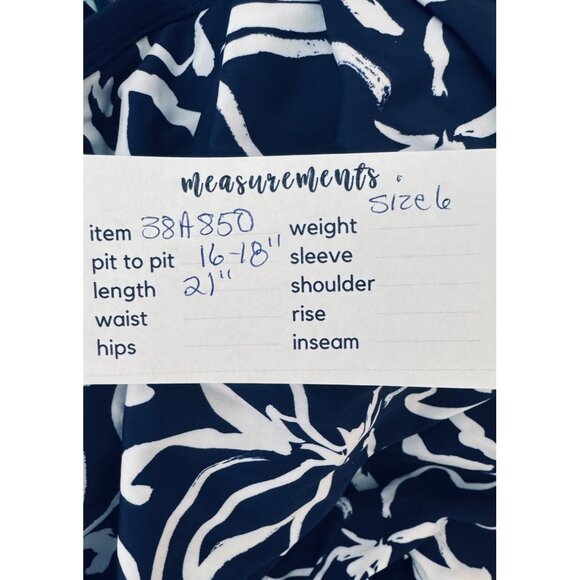 measurements
size 6
item 38A850 weight
pit to pit 16-18" sleeve
length 21" shoulder
waist rise
hips inseam